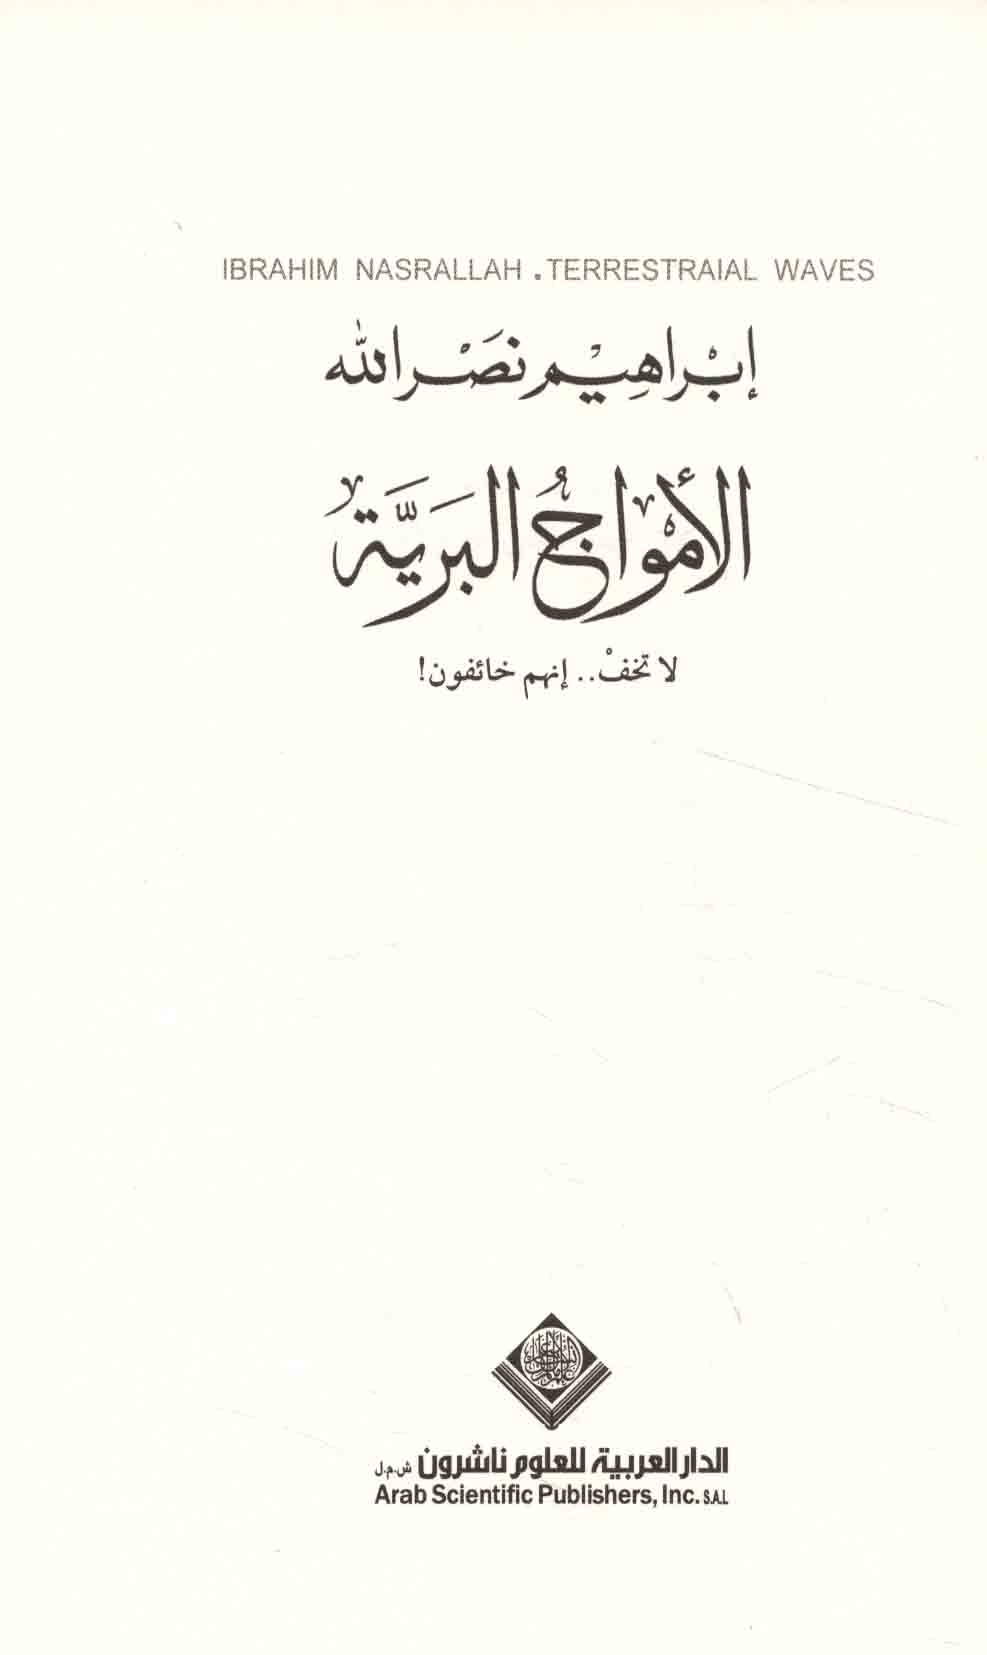 IBRAHIM NASRALLAH . TERRESTRAIAL WAVES
إبْراهِيْم نَصْر الله
الأمْواجُ البَريَّة
لا تخفْ.. إنهم خائفون!
الدار العربية للعلوم ناشرون ش.م.ل
Arab Scientific Publishers, Inc. S.A.L